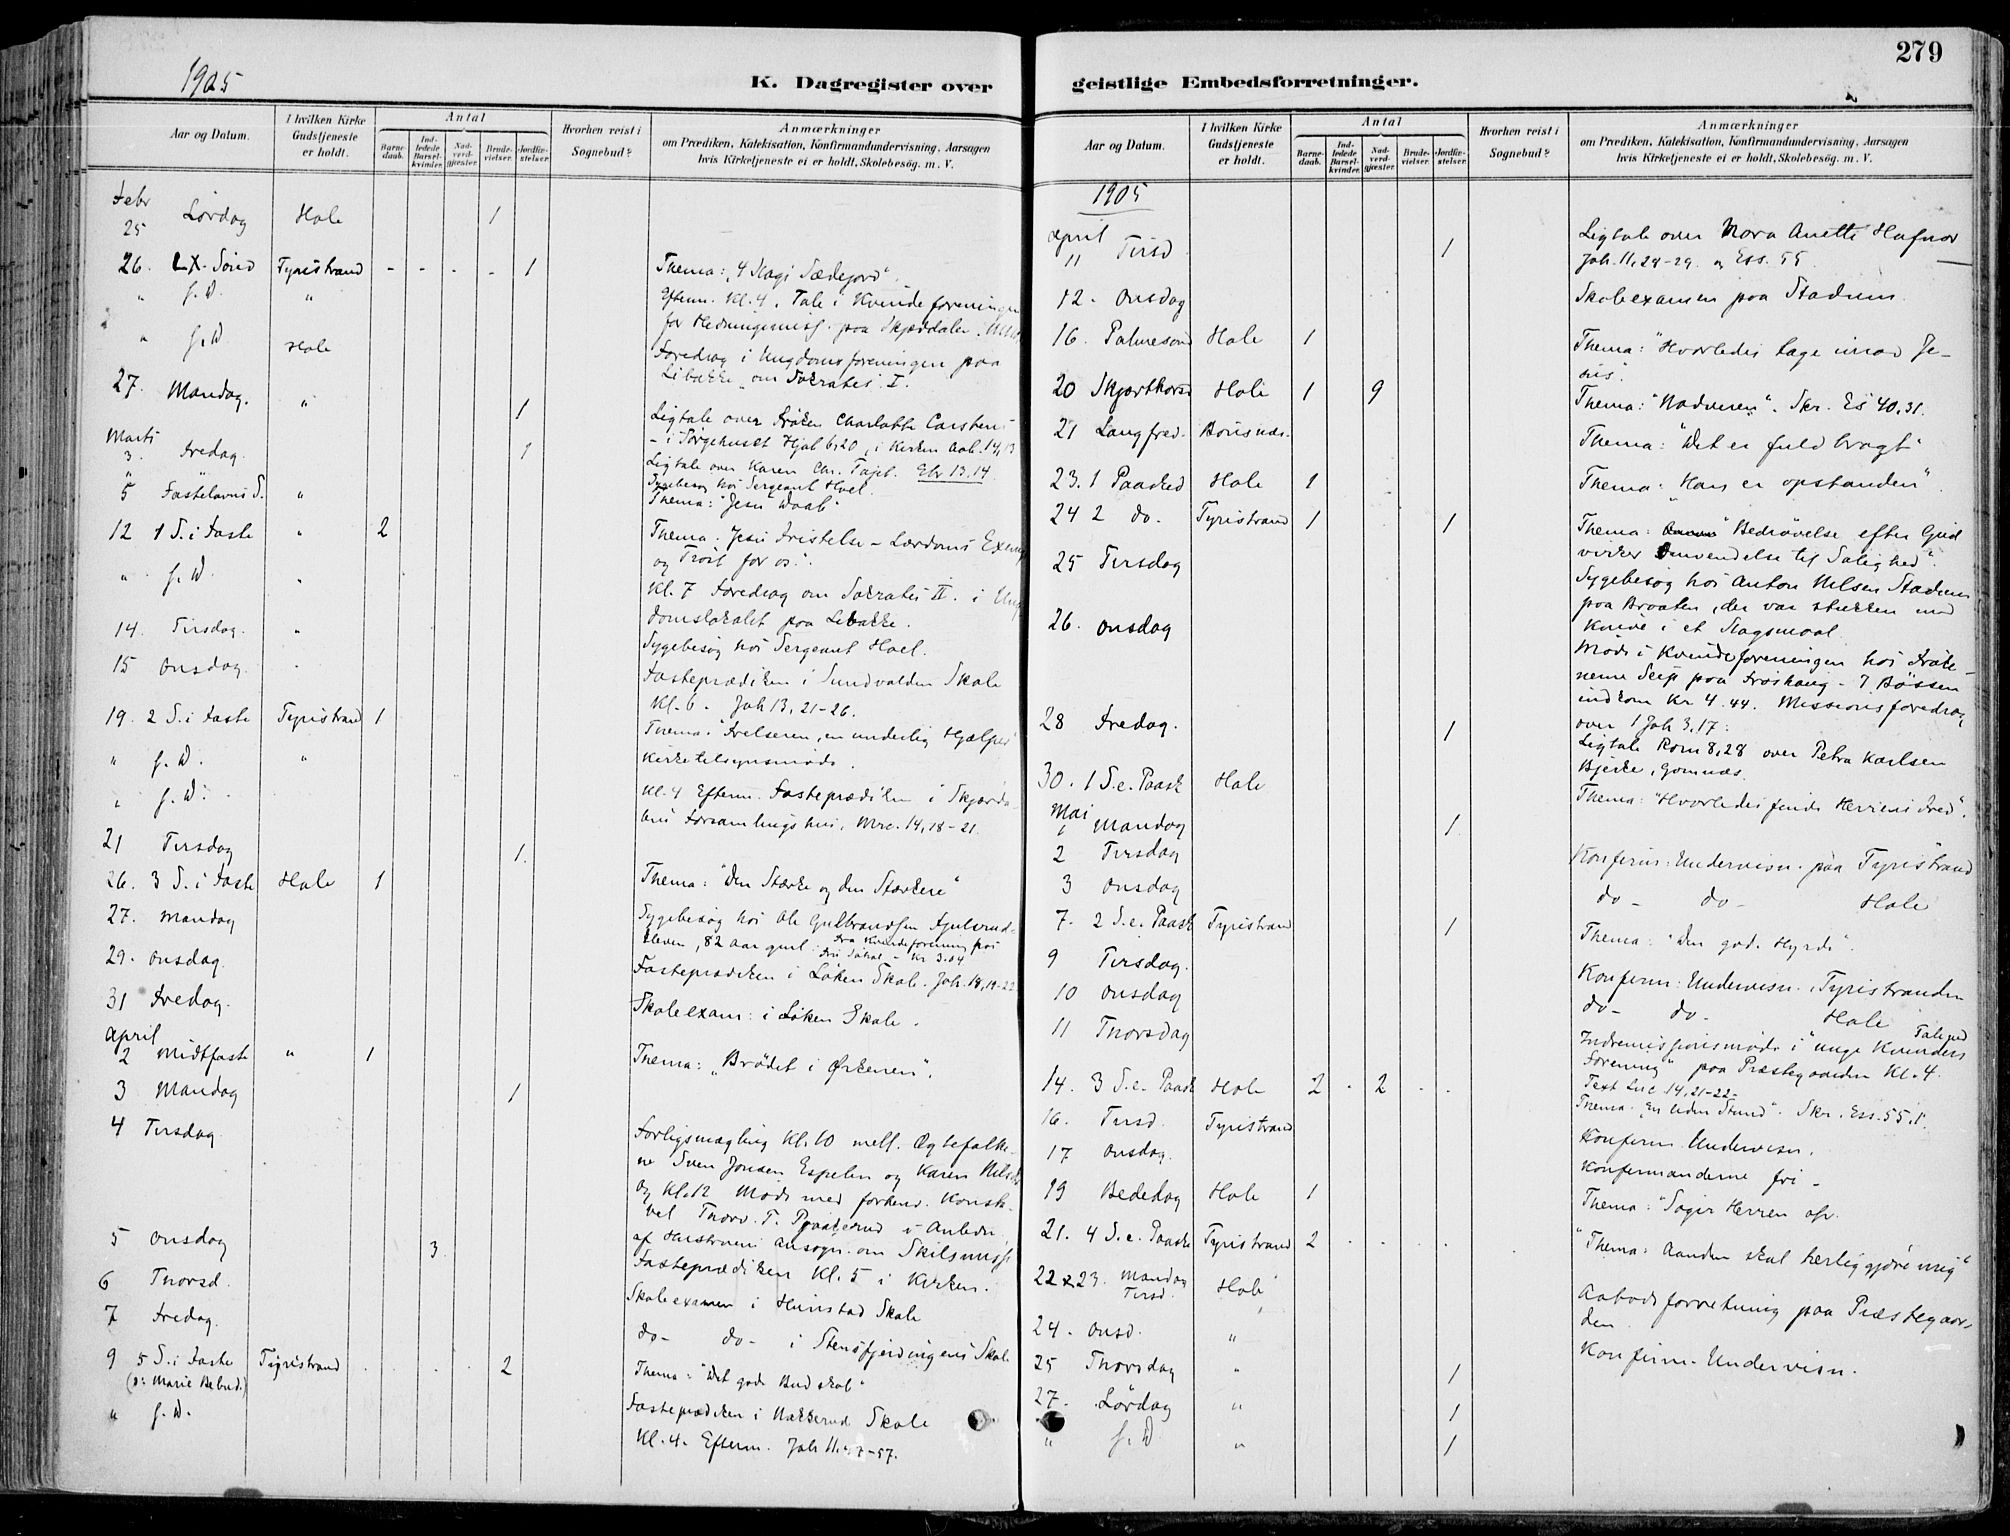 279
1905
K. Dagregister over geistlige Embedsforretninger.
Aar og Datum.
I hvilken Kirke Gudstjeneste er holdt.
Antal
Barnedaab.
Indledede Barselkvinder.
Nadverdgjæster.
Brudevielser.
Jordfæstelser.
Hvorhen reist i Sognebud?
Anmærkninger
om Prædiken, Katekisation, Konfirmandundervisning, Aarsagen
hvis Kirketjeneste ei er holdt, Skolebesög. m. V.
Febr
25 Lørdag Hole 1
26. LX. Sønd Tyristrand - - - - 1 Thema: "4 Slags Sædejord".
" s. D. " Efterm. Kl. 4. Tale i Kvindeforeningen
for Hedningemiss. paa Skjæddalen.
" s. D. Hole Foredrag i Ungdomsforeningen paa
Libakke om Sokrates I.
27. Mandag. " 1 Ligtale over Frøken Charlotte Carstens
- i Sørgehuset Hjob 6,20, i Kirken Aab. 14,13
Marts
3. Fredag. 1 Ligtale over Karen Chr. Fajel. Ebr 13.14.
" Sygebesøg hos Sergeant Hoel.
5 Fastelavns S. " Thema: "Jesu Daab"
12 1 S. i Faste " 2 Thema. Jesu Fristelse - Lærdoms
og Trøst for os".
" s. D. " Kl. 7 Foredrag om Sokrates II. i
domslokalet paa Libakke.
14. Tirsdag. " Sygebesøg hos Sergeant Hoel.
15 Onsdag. Fasteprædiken i Sundvolden Skole
Kl. 6 - Joh 13, 21-26.
19. 2 S. i Faste Tyristrand 1 Thema: "Frelseren, en underlig Hjælper"
" s. D. " Kirketilsynsmøde.
" s. D. Kl. 4 Efterm. Fasteprædiken i
Forsamlingshus, Mrc. 14,18-21.
21 Tirsdag 1.
26. 3 S. i Faste Hole 1 Thema: "Den Stærke og den Stærkere"
27. Mandag Sygebesøg hos Ole Gulbrandsen
eleven, 82 aar gml. Fra Kvindeforening hos
Kr 3.04
29. Onsdag. Fasteprædiken i Løken Skole. Joh. 18,19-22
31 Fredag. Skoleexam: i Løken Skole.
April
2 Midtfaste " 1 Thema: "Brødet i Ørkenen".
3 Mandag 1
4 Tirsdag Forligsmægling Kl. 10 mell. Ægtefolke-
ne Sven Jonsen Espelien og Karen
og Kl. 12 Møde med forhenv.
vel Thorv. T. i Anledn.
af Hustruens Ansøgn. om Skilsmisse
5 Onsdag 3. Fasteprædiken Kl. 5 i Kirken.
6 Thorsd. Skoleexamen i Skole
7 Fredag. do- do- i Stensfjerdingens Skole
9 5 S. i Faste Tyristrand 2 Thema: "Det gode Budskab"
(o: Marie Bebud.)
" s. D. Fasteprædiken i Nakkerud Skole
Kl. 4. Efterm. Joh 11.47-57.
Aar og Datum.
I hvilken Kirke Gudstjeneste er holdt.
Antal
Barnedaab.
Indledede Barselkvinder.
Nadverdgjæster.
Brudevielser.
Jordfæstelser.
Hvorhen reist i Sognebud?
Anmærkninger
om Prædiken, Katekisation, Konfirmandundervisning, Aarsagen
hvis Kirketjeneste ei er holdt, Skolebesög. m. V.
1905
April
11 Tirsd 1 Ligtale over Nora Anette Hafnor
Joh. 11,28-29. og Ess. 55.
12. Onsdag Skoleexamen paa Stadum.
16. Palmesønd Hole 1 Thema: "Hvorledes tage imod Je-
sus".
20 Skjærthorsd Hole 1 9 Thema: "Nadveren". Skr. Es 40,31.
21 Langfred. Bønsnæs. Thema: "Det er fuldbragt"
23. 1 Paasked Hole 1 Thema: "Han er opstanden".
24 2 do. Tyristrand 1 1 Thema: "Bedrøvelse efter Gud
virker Omvendelse til Salighed".
25 Tirsdag Sygebesøg hos Anton Nilsen Stadum
paa Braaten, der var stukken med
Kniv i et Slagsmaal.
26. Onsdag Møde i Kvindeforeningen hos Frøk-
nerne Seip paa Frøshaug - I Bøssen
indkom Kr 4.44. Missionsforedrag
over 1 Joh 3,17.
28 Fredag. 1 Ligtale Rom 8,28 over Petra Karlsen
Bjerke, Gomnæs.
30. 1 S. e. Paask Hole Thema: "Hvorledes finde Herrens Fred".
Mai
1 Mandag 1
2 Tirsdag Konfirm: Undervisn. paa Tyristrand
3 Onsdag do- do- Hole
7. 2 S. e. Paask Tyristrand 1 Thema: "Den gode Hyrde".
9 Tirsdag. Konfirm: Undervisn. Tyristranden
10 Onsdag do- do- Hole
11 Thorsdag Indremissionsmøde i "unge Kvinders
Forening" paa Præstegaarden Kl. 4.
Text Luc 14,21-22-
14. 3 S. e. Paask Hole 2 - 2 - - Thema. "En liden Stund". Skr. Ess. 55.1.
16. Tirsd. Tyristrand Konfirm. Undervisn.
17 Onsdag. Konfirmanderne fri -
19 Bededag Hole 1 Thema: "Søger Herren
21. 4 S. e. Paaske Tyristrand 2 "Thema: Aanden skal herliggjøre mig"
22 & 23. Mandag Tirsd. Hole Aabodsforretning paa Præstegaar-
den.
24. Onsd. " Konfirm. Undervisn.
25 Thorsdag " 1
27. Lørdag " 1
" s. D " 1